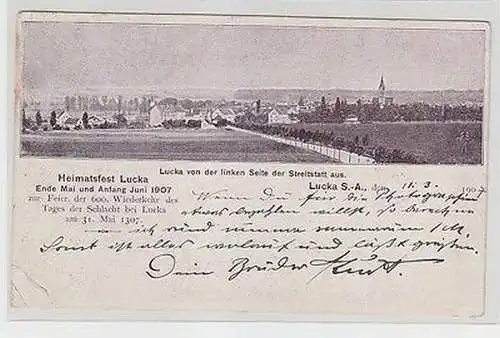 Lucka von der linken Seite der Streitstatt aus.
Heimatsfest Lucka
Ende Mai und Anfang Juni 1907
zur Feier der 600. Wiederkehr des
Tages der Schlacht bei Lucka
am 31. Mai 1307.
Lucka S.-A., den 11. 3. 1907
Wenn Du für die Photographien
etwas bezahlen willst, so berechne
ich rund
Sonst ist alles wolauf und läßt grüßen.
Dein Bruder Kurt.